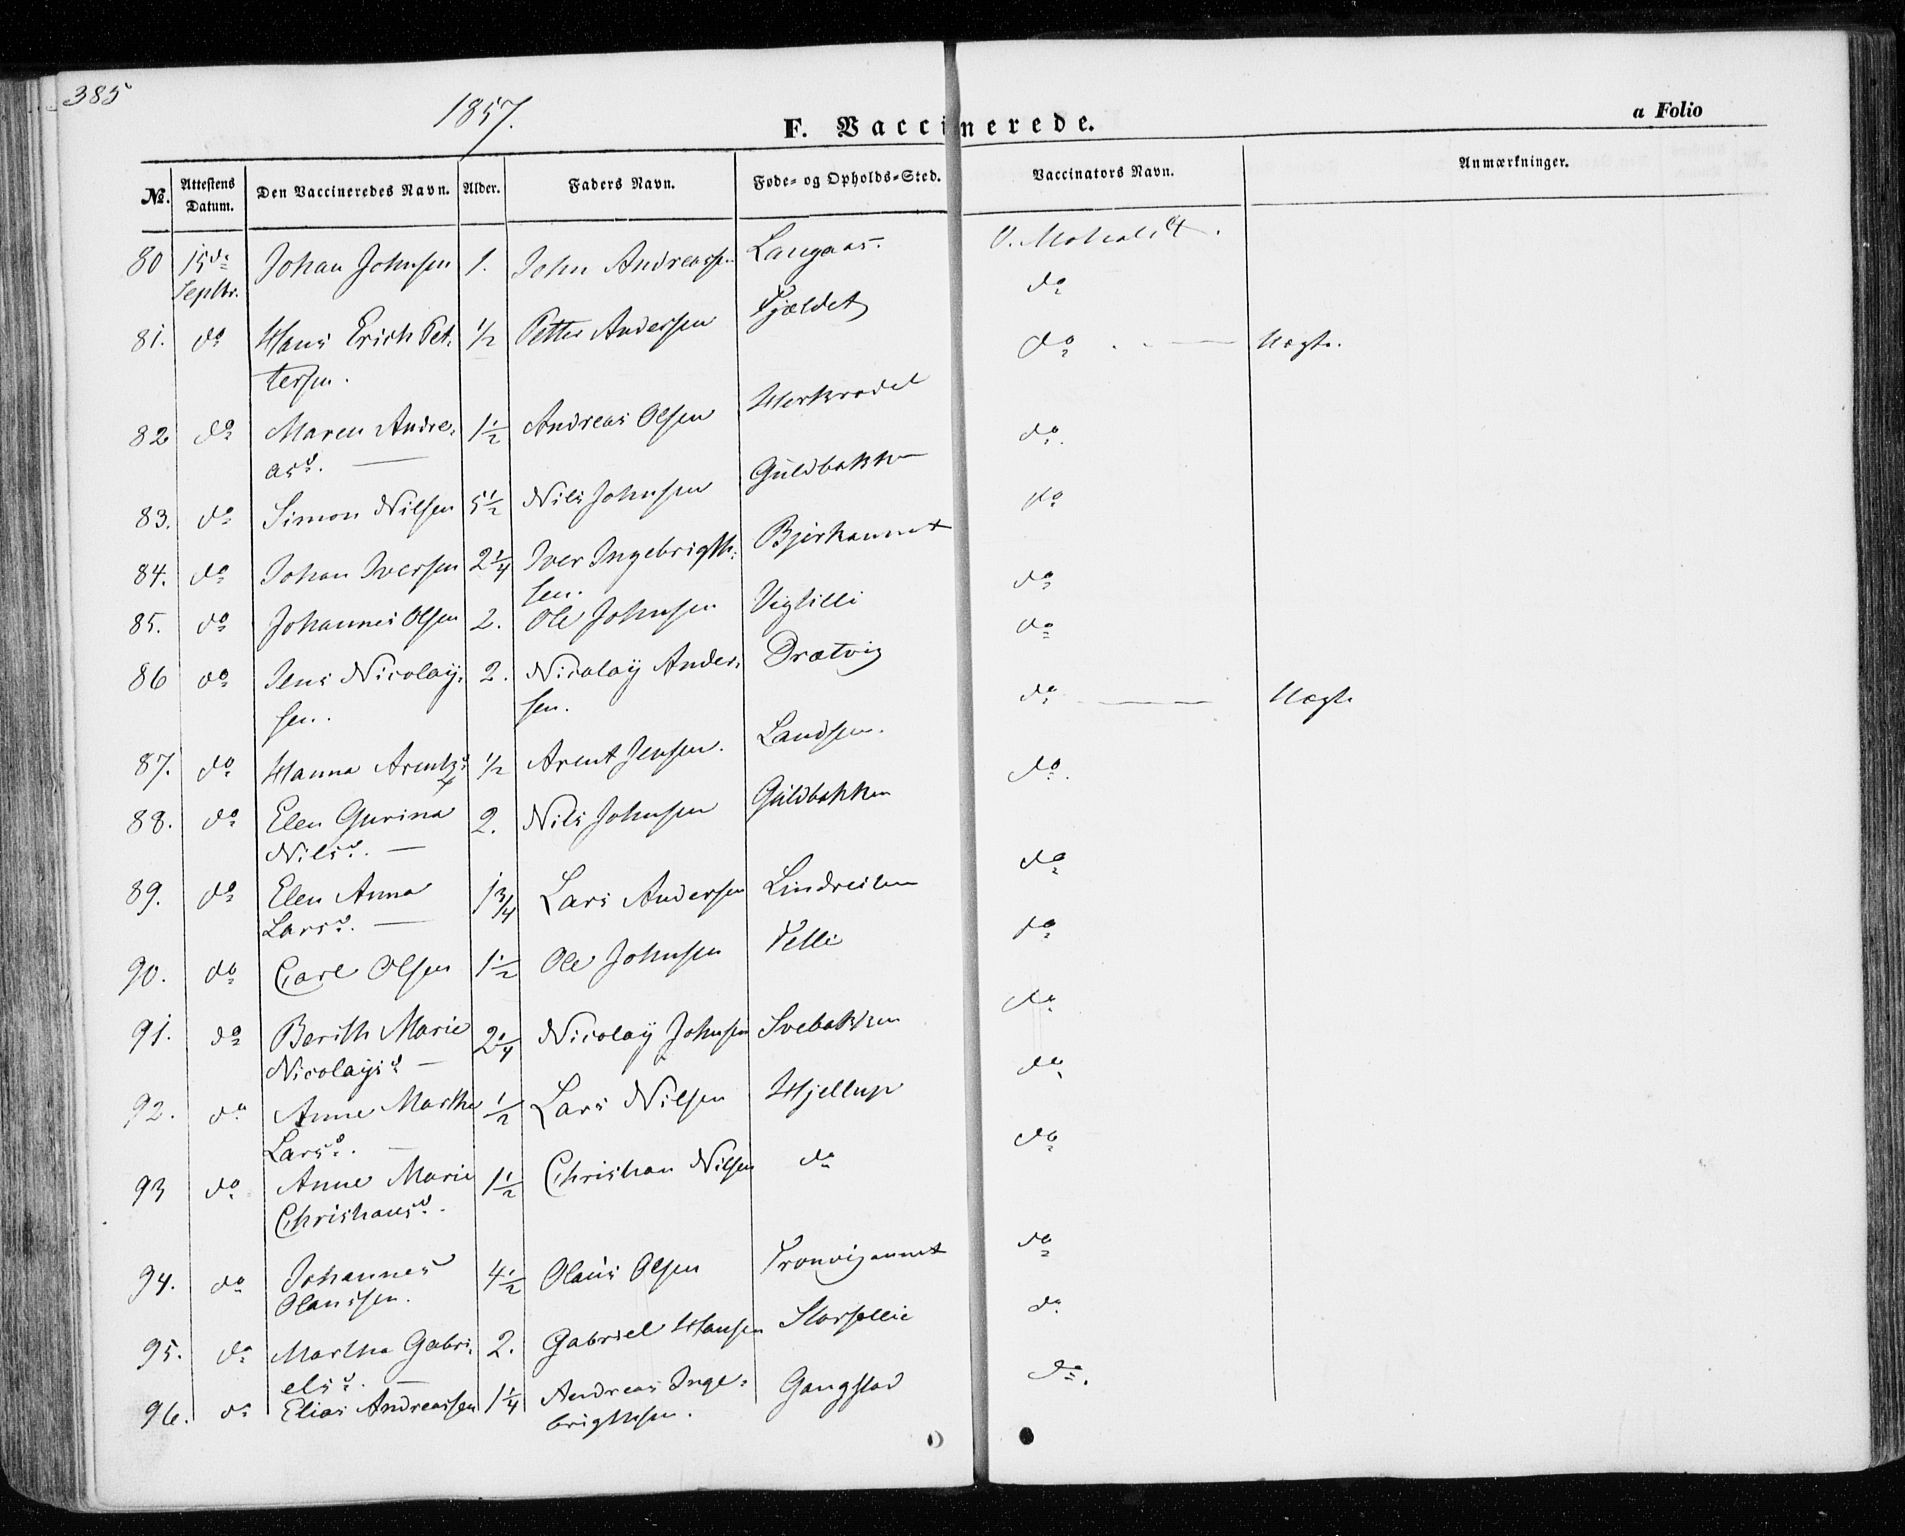 385
1857.
F. Vaccinerede.
a Folio
No. Attestens Datum. Den Vaccineredes Navn. Alder. Faders Navn. Føde- og Opholds-Sted. Vaccinators Navn. Anmærkninger.
80 15de Johan Johnsen 1. John Andreassen Langaas.
Septbr.
81. do Hans Erich Pet- 1/2 Petter Andersen Fjældet do
tersen. do Uægte.
82 do Maren Andre- 1 1/2 Andreas Olsen
asd. do.
83. do Simon Nilsen 5 1/2 Nils Johnsen Guldbakken do
84. do Johan Iversen 2 1/4 Iver Ingebrigth- Bjerkaunet
sen. do
85. do Johannes Olsen 2. Ole Johnsen Vigtilli do
86 do Jens Nicolay- 2. Nicolaÿ Ander- Drætvig
sen. sen. do Uægte
87. do Hanna Arentzd 1/2 Arent Jensen. Landsem. do.
88. do Elen Gurina 2. Nils Johnsen Guldbakken
Nilsd. do
89. do Elen Anna 1 3/4 Lars Andersen
Larsd. do
90. do Carl Olsen 1 1/2 Ole Johnsen Telli do
91. do Berith Marie 2 1/4 Nicolaÿ Johnsen Svebakken
Nicolaÿsd do
92. do Anne Marthe 1/2 Lars Nilsen Hjellup
Larsd. do
93 do Anne Marie 1 1/2 Christian Nilsen do
Christiansd.
94. do Johannes 4 1/2 Olaus Olsen Tronvigaunet do
Olaussen.
95. do Martha Gabri- 2. Gabriel Hansen do
elsd.
96. do Elias Andreassen 1 1/4 Andreas Inge- Gangstad do.
brigthsen.